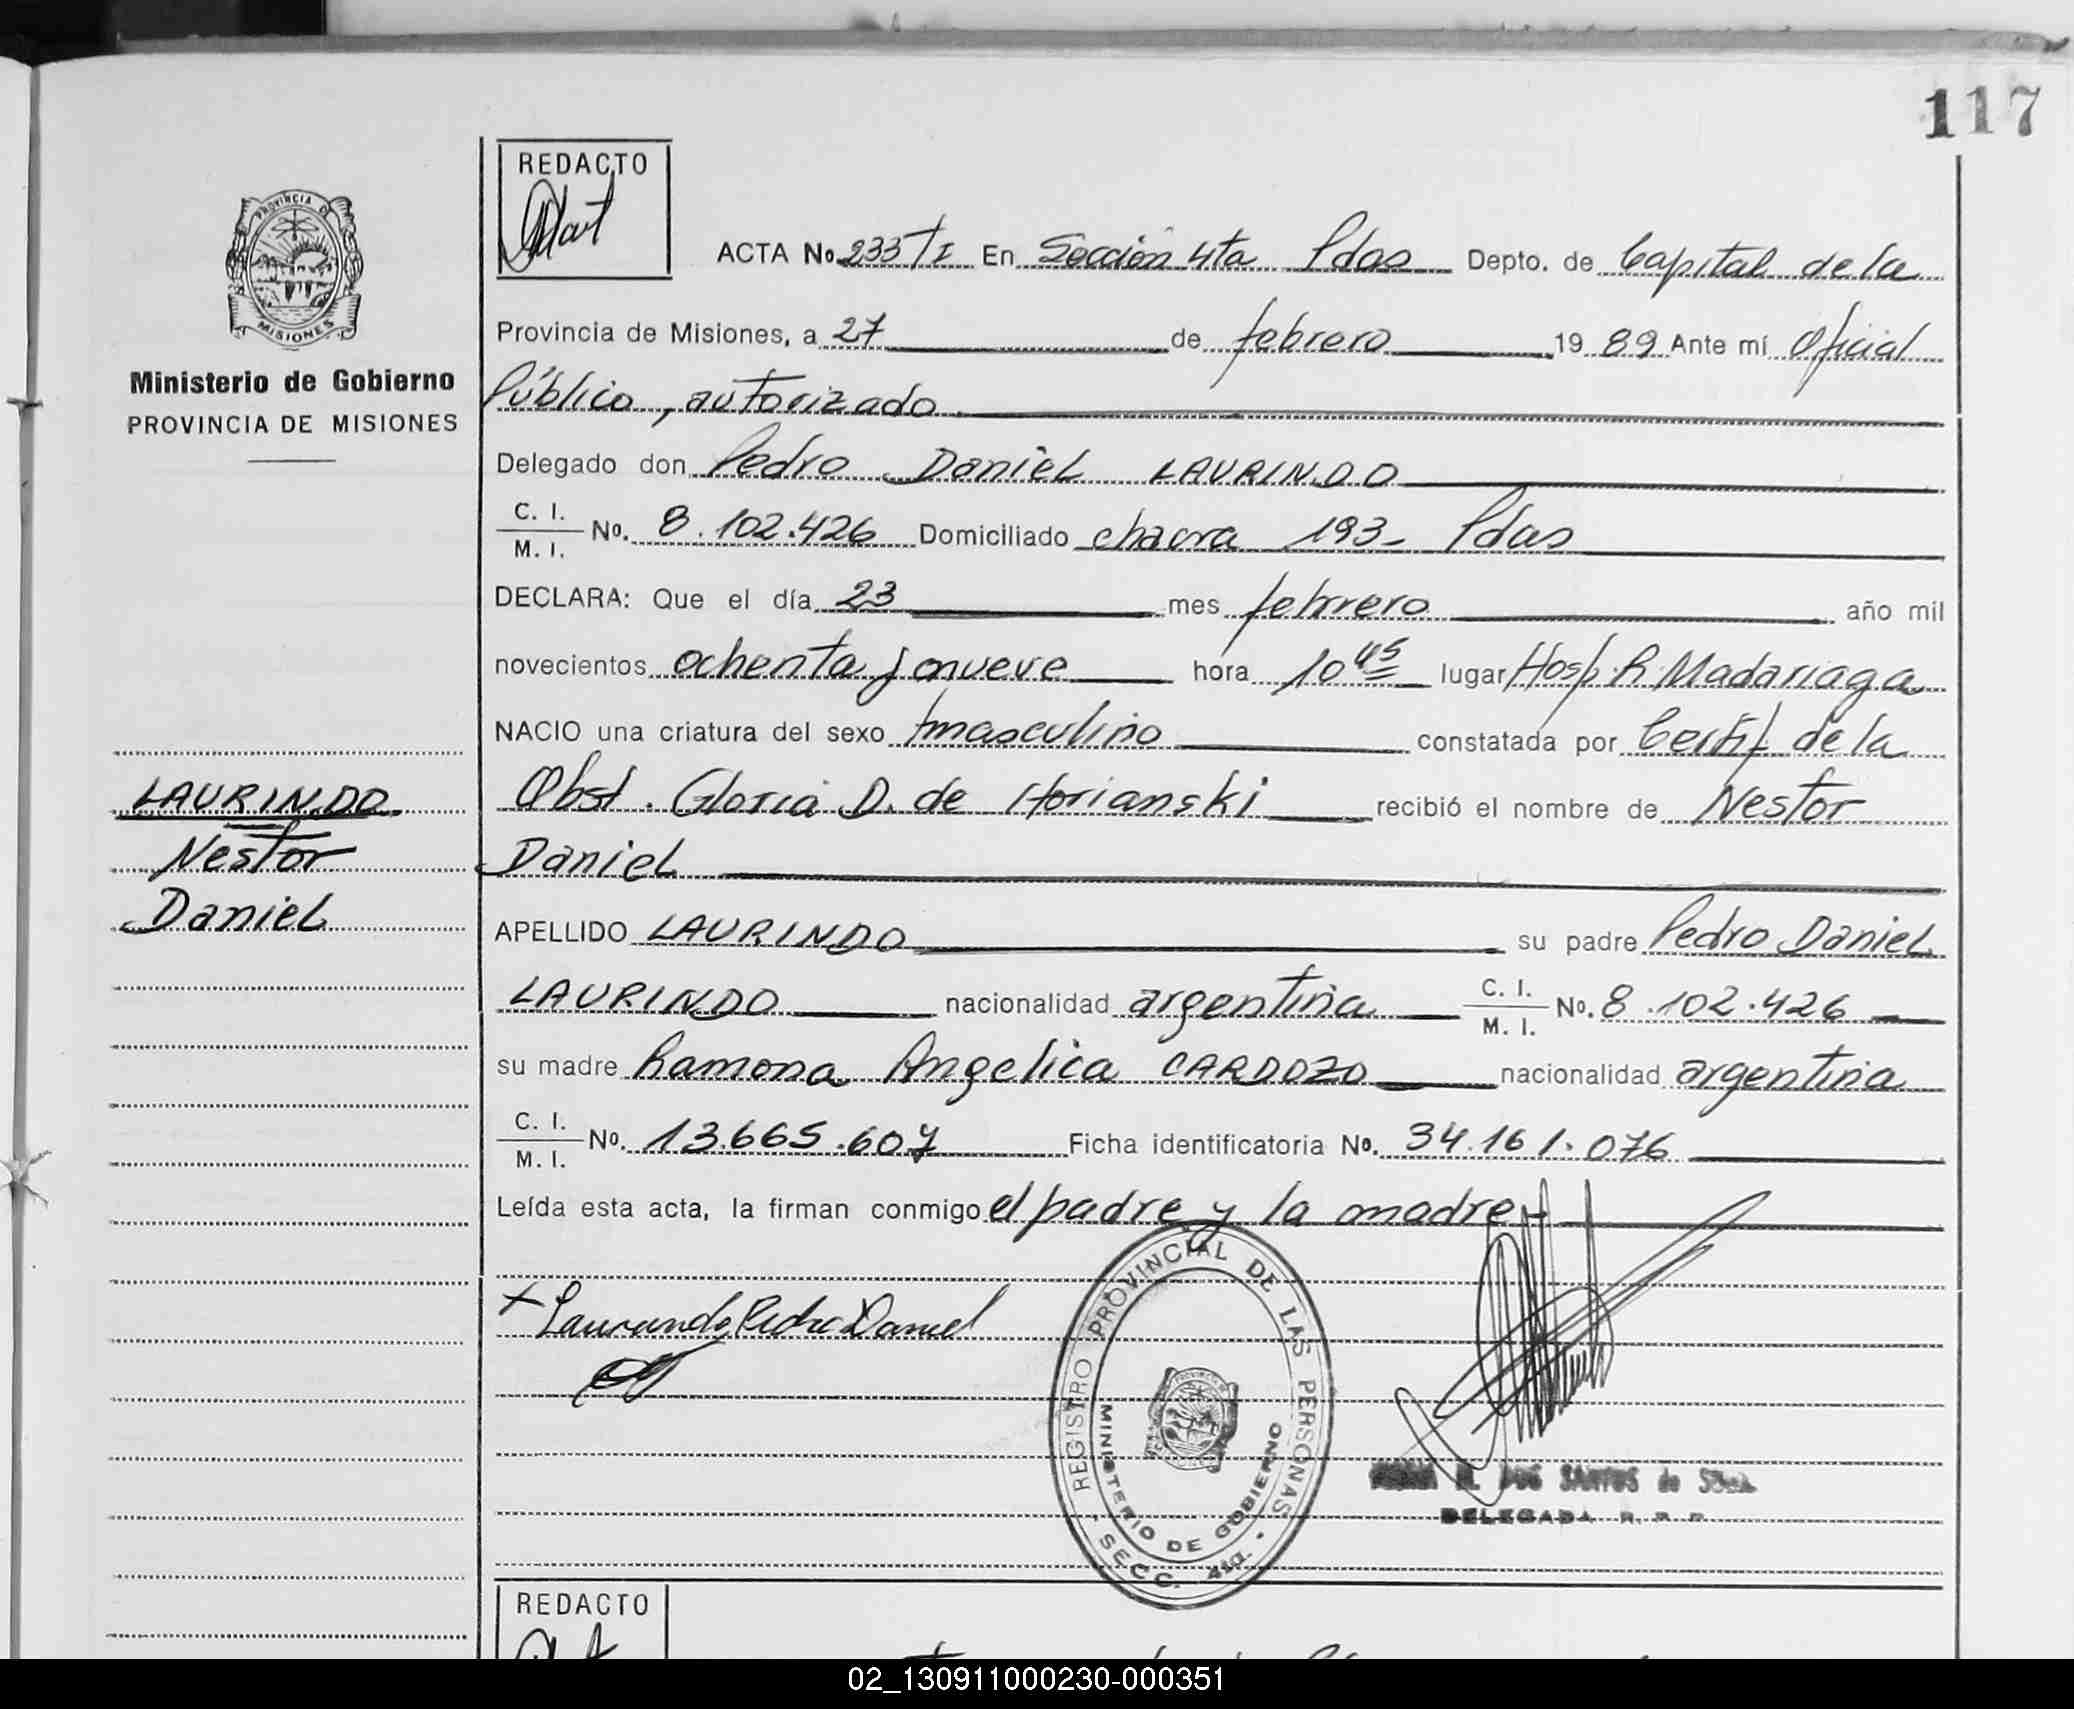 117
REDACTO
PROVINCIA D
MISIONES
Ministerio de Gobierno
PROVINCIA DE MISIONES
ACTA No 233 TI En Sección 4ta Pdas Depto. de Capital de la
Provincia de Misiones, a 27 de febrero 19 89 Ante mí Oficial
Público, autorizado
Delegado don Pedro Daniel LAURINDO
C. I.
M. I. No. 8.102.426 Domiciliado chacra 193- Pdas
DECLARA: Que el día 23 mes febrero año mil
novecientos ochenta y nueve hora 10 45 lugar Hosp. R. Madariaga
NACIO una criatura del sexo masculino constatada por Certif de la
Obst. Gloria D. de Horianski recibió el nombre de Nestor
Daniel
LAURINDO
Nestor
Daniel
APELLIDO LAURINDO su padre Pedro Daniel
LAURINDO nacionalidad argentina C. I. M. I. No. 8.102.426
su madre Ramona Angelica CARDOZO nacionalidad argentina
C. I.
M. I. No. 13.665.607 Ficha identificatoria No. 34.161.076
Leída esta acta, la firman conmigo el padre y la madre-
x Laurindo Pedro Daniel
REGISTRO PROVINCIAL DE LAS PERSONAS
MINISTERIO DE GOBIERNO
- SECC. 4ta. -
DOS SANTOS de
DELEGADA R. P. P.
REDACTO
02_130911000230-000351